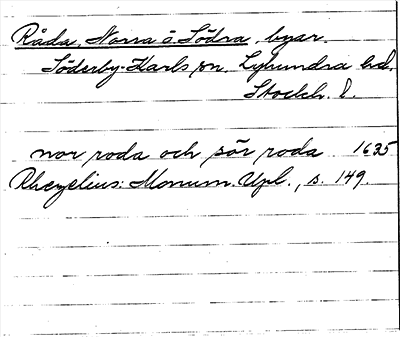 Råda, Norra o. Södra, byar.
Söderby-Karls sn. Lyhundra hd.
Stockh. l.
nor roda och sör roda 1635
Rhezelius: Monum. Upl., s. 149.